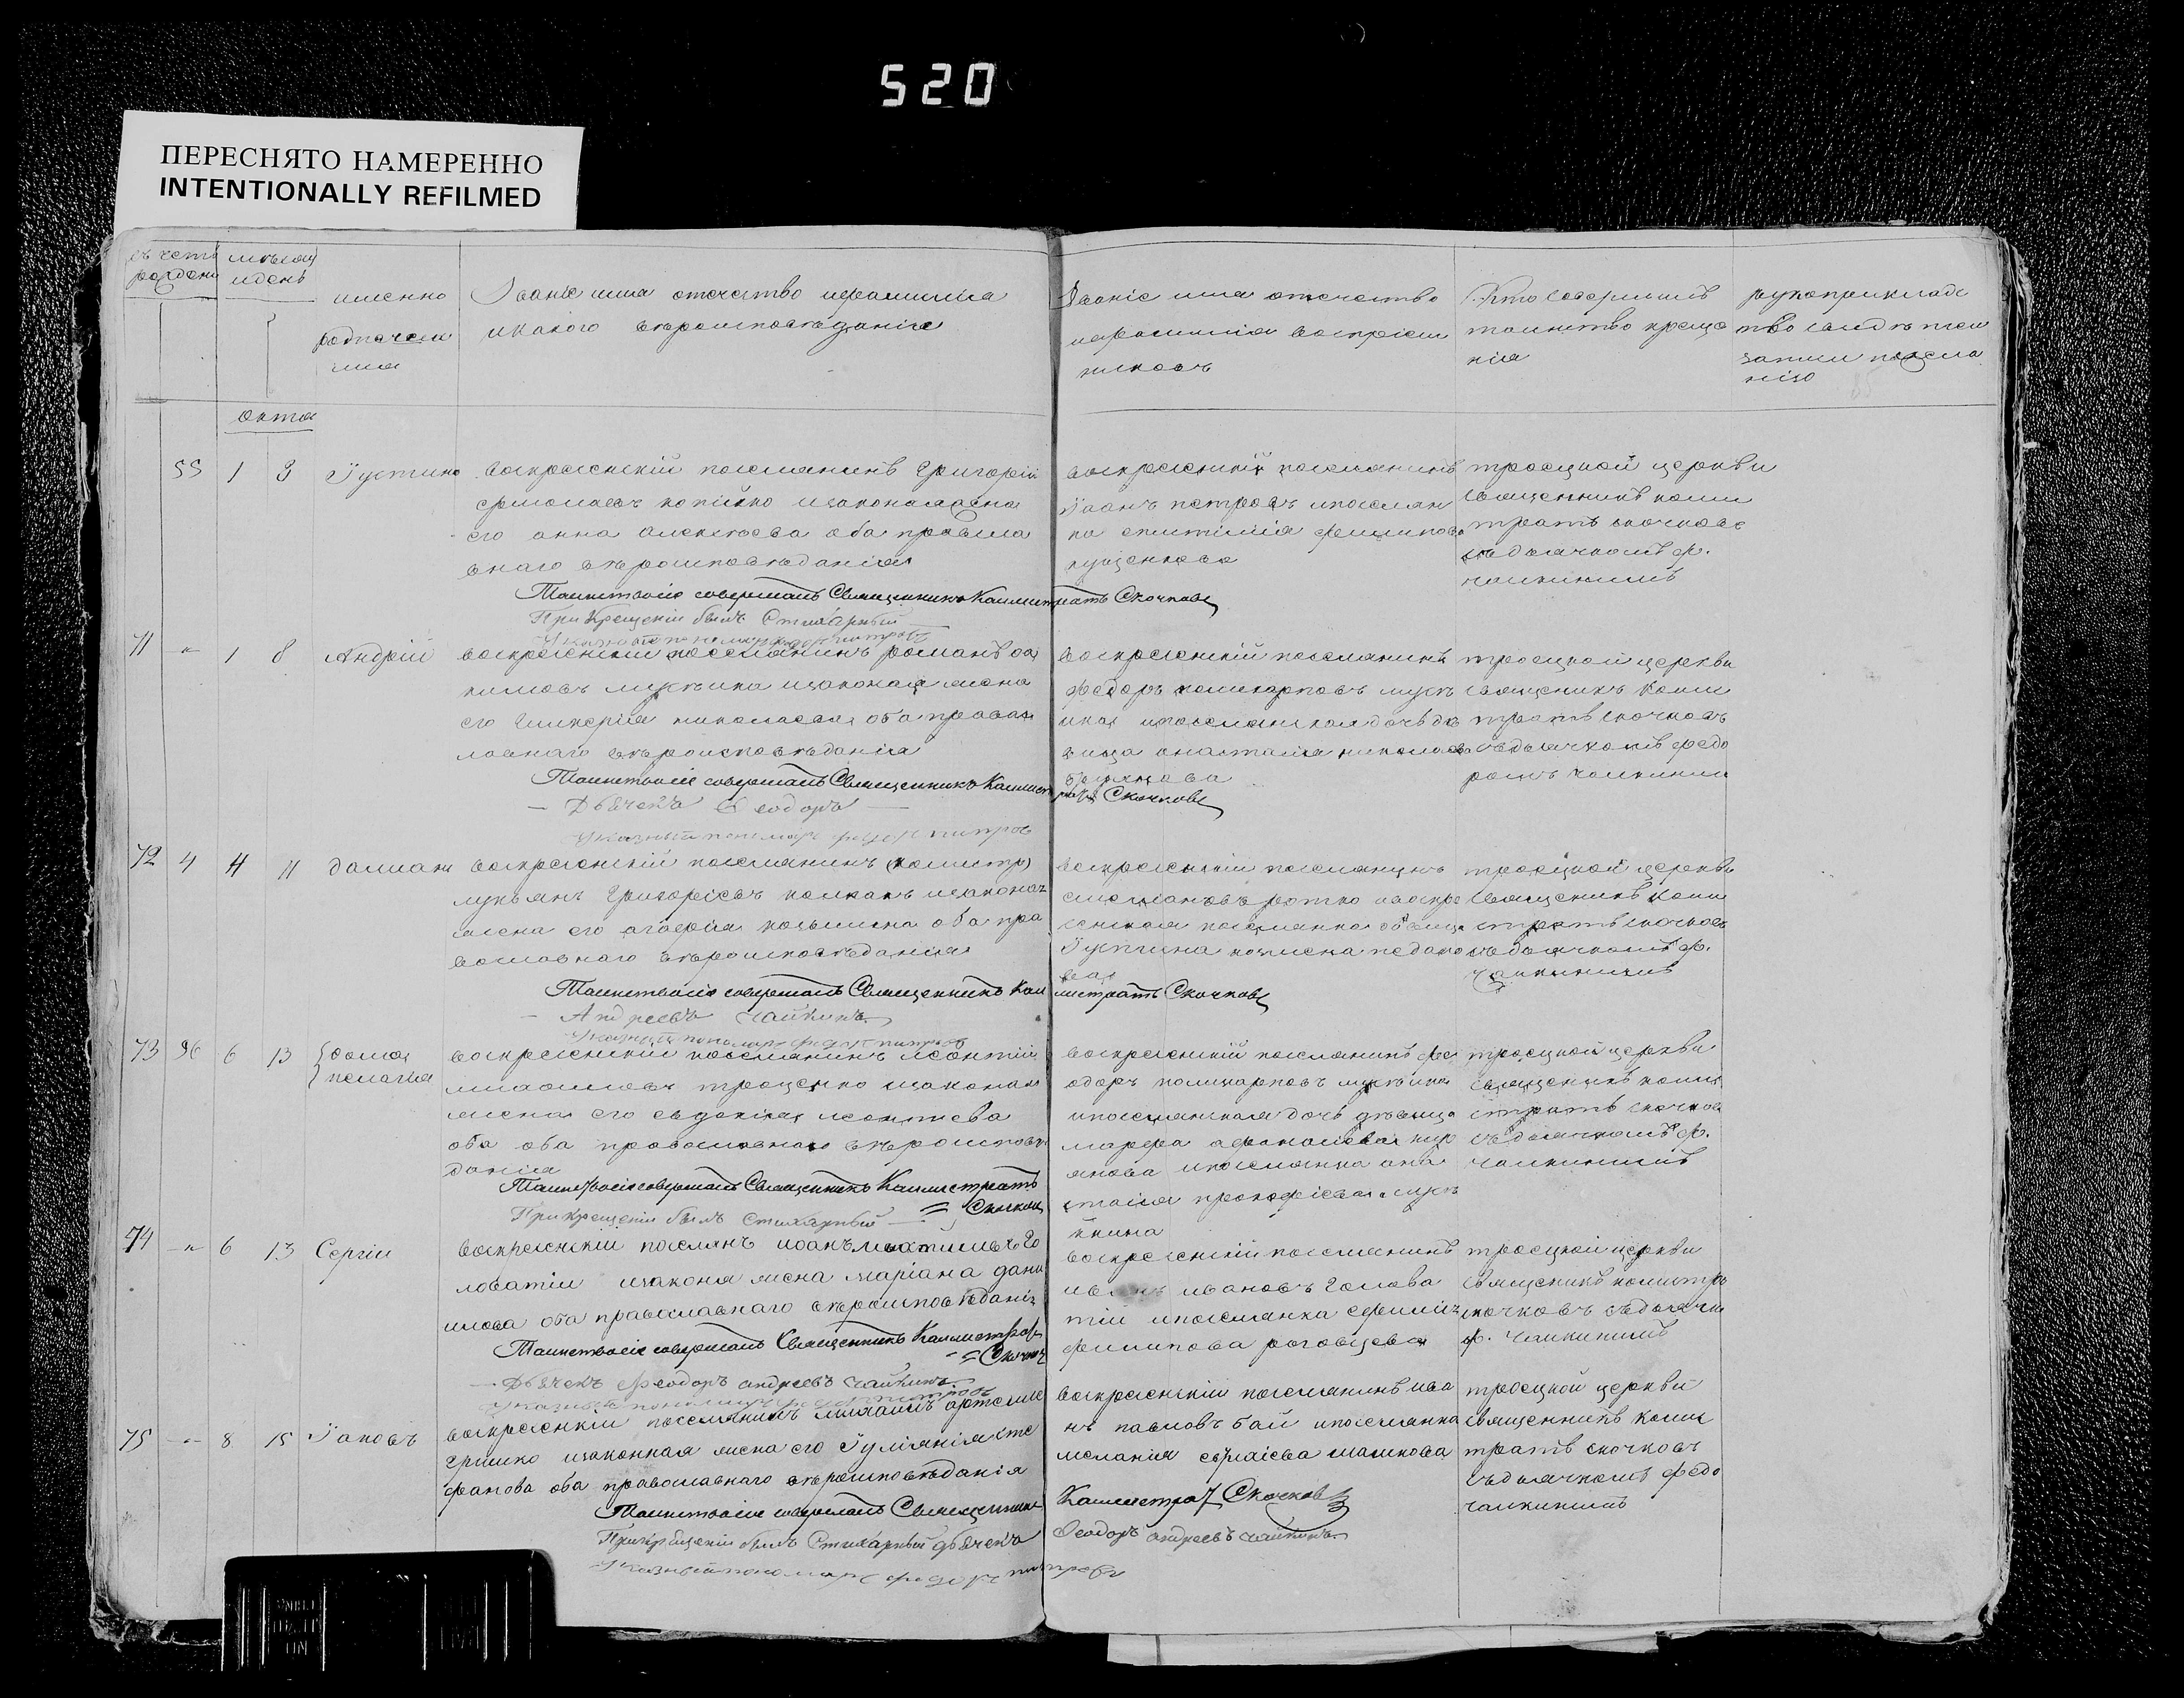 520
ПЕРЕСНЯТО НАМЕРЕННО
INTENTIONALLY REFILMED
мѣсяц
идень
имена
родившихся
Званіе имя отечество ифамилія
икакого вѣроисповѣданія
Званіе имя отечество
ифамилія воспріем
никовъ
Кто совершилъ
таинство креще
нія
рукоприклад
ство
записи по жела
нію
окта
55 1 3 Іустина
воскресенскій поселянинъ Григорій
ермолаевъ копійко изаконаяжена
его анна алексѣева оба правосла
внаго вѣроисповѣданія
воскресенскій поселянинъ
Іоанъ петровъ ипоселян
ка епитимія филипова
куценкова
троецкой церкви
священникъ кали
стратъ скочковъ
съдьячкомъ ф.
чайкинимъ
Таинство сіе совершалъ Священникъ Каллистратъ Скочковъ
При Крещеніи былъ Стихарный
71 - 1 8 Андрій
воскресенскій поселянинъ романъ
его гликерія николаева оба правос
лавнаго вѣроисповѣданія
воскресенскій поселянинъ
федоръ поликарповъ
ипоселянская дочь дѣ
вица анастасія николаева
троецкой церкви
священикъ кали
стратъ скочковъ
съдьячкомъ федо
ромъ чайкиним
Таинство сіе совершалъ Священникъ Каллист
ратъ Скочковъ
— Дьячекъ Ѳеодоръ —
Указный пономарь федор питров
72 4 4 11 даміанъ
воскресенскій поселянинъ (калистр)
лукьянъ Григоріевъ колкакъ изаконая
жена его агафія козьмина оба пра
вославнаго вѣроисповѣданія
воскресенскій поселянинъ
ротко ивоскре
сенская поселянка
Іустина
троецкой церкви
священикъ кали
стратъ скочковъ
съдьячкомъ ф.
чайкинимъ
Таинство сіе совершалъ Священникъ Кал
листратъ Скочковъ
— Андреевъ Чайкинъ
Указный пономарь федор питров
73 36 6 13 {фома
{пелагія
воскресенскій поселянинъ леонтій
михаиловъ троценко изаконая
жена его евдокія леонтиева
оба оба православнаго вѣроисповѣ
данія
воскресенскій поселянинъ фе
одоръ поликарповъ
ипоселянская дочь дѣвица
марфа афанасіева кир
янова ипоселянка ана
стасія прокофіева
троецкой церкви
священикъ кали
стратъ скочков
съдьячкомъ ф.
чайкинимъ
Таинство сіе совершалъ Священникъ Каллистратъ
Скочков
При Крещеніи былъ Стихарный —
74 - 6 13 Сергіи
воскресенскіи поселянъ иоанъ го
ловатіи изаконая жена маріана дани
илова оба православнаго вѣроисповѣданія
воскресенскій поселянинъ
иванъ ивановъ голова
тій ипоселянка ефимія
филипова роговцева
троецкой церкви
священикъ калистра
скочковъ съдьячк
ф. чайкинимъ
Таинство сіе совершалъ Священникъ Каллистрат
Скочков
— Дьячекъ Ѳеодоръ андреевъ Чайкинъ
75 - 8 15 Іаковъ
воскресенскіи поселянинъ михаилъ артемие
гришко изаконная жена его Іуліянія сте
фанова оба православнаго вѣроисповѣданія
воскресенскіи поселянинъ ива
нъ павловъ бай ипоселянка
меланія
троецкой церкви
священникъ кали
стратъ скочковъ
съдьячкомъ федо
чайкинимъ
Таинство сіе совершалъ Священник
Каллистрат Скочковъ
При Крещеніи былъ Стихарный дьячекъ
Ѳеодоръ андреевъ чайкинъ
Указный пономарь федоръ питровъ